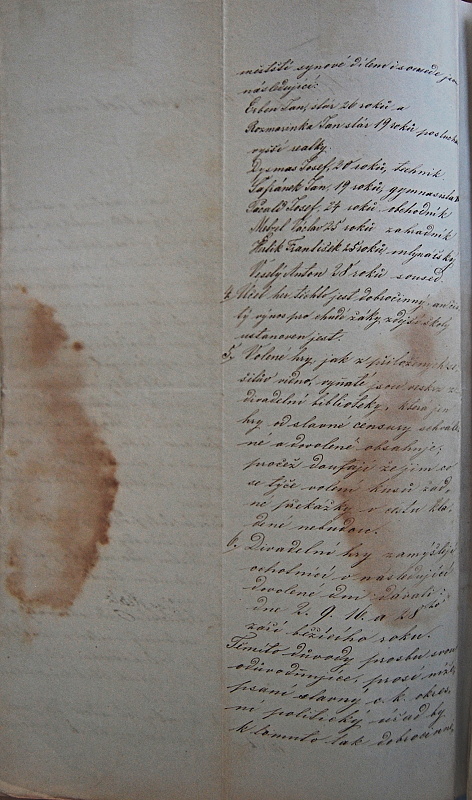 místní synové dílem i sousedé jsou
následující:
Erben Jan, stár 26 roků a
Rozmarinka Jan stár 19 roků posluchač
vyšší realky.
Dysmas Josef, 20 roků, technik
Jan, 19 roků, gymnasista
Josef, 24 roků obchodník
Václav 25 roků zahradník
Hulík František 25 roků, mlynářský
Veselý Anton 28 roků soused.
4. Účel her těchto jest dobročinný, an čis-
tý výnos pro chudé žáky zdejší školy
ustanoven jest.
5. Volené hry, jak z přiložených se-
šitův vidno, vyňaté jsou veskrz z
divadelní biblioteky, která jen
hry od slavné censury schvále-
né a dovolené obsahuje;
pročež doufají že jim co
se týče volení kusů žád-
né překážky v cestu kla-
dené nebudou.
6. Divadelní hry zamýšlejí
ochotníci v následující
dovolené dni dávati:
dne 2. 9. 16. a 28ho
září běžícího roku.
Těmito důvody prosbu svou
odůvodňujíce, prosí níže
psaní slavný c. k. okres-
ní politický úřad by
k tomuto tak dobročinné-